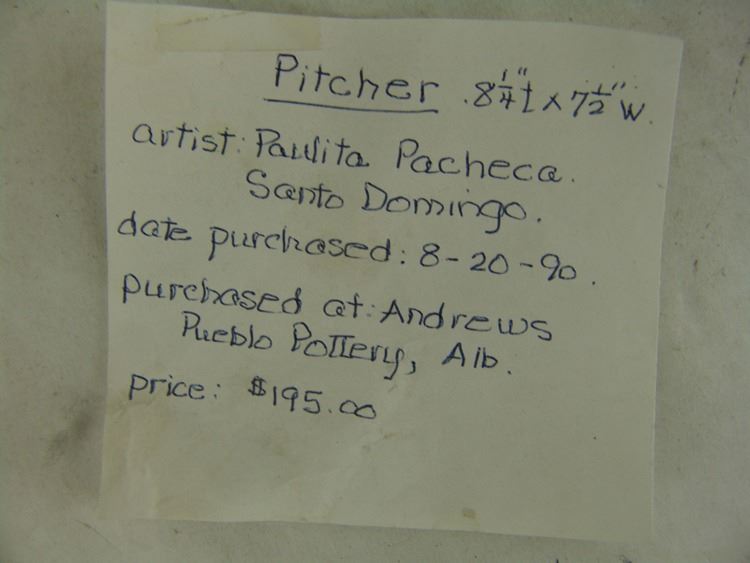 Pitcher 8 1/4" t x 7 1/2" W.
artist: Paulita Pacheca.
Santo Domingo.
date purchased: 8-20-90.
purchased at: Andrews
Pueblo Pottery, Alb.
price: $195.00